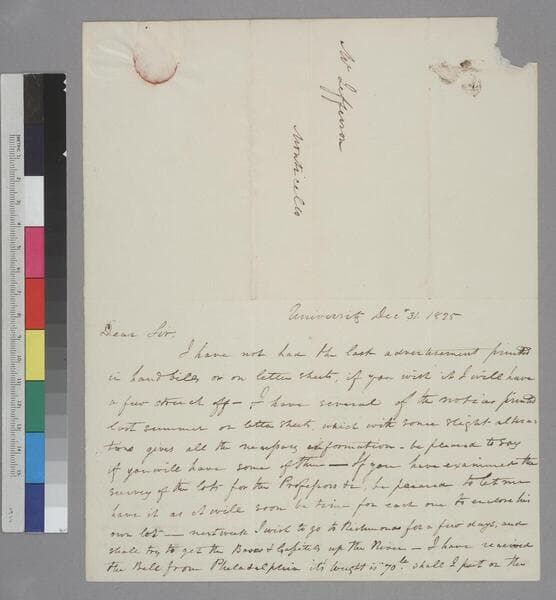 Mr Jefferson
Monticello
University Decr 31. 1825
Dear Sir.
I have not had the last advertisement printed
in hand bills or on letter sheets, if you wish it I will have
a few struck off — I have several of the notices printed
last summer on letter sheets, which with some slight altera-
tions gives all the necessary information — be pleased to say
if you will have some of them — If you have examined the
survey of the lots for the Professors &c, be pleased to let me
have it as it will soon be time for each one to enclose his
own lot — next week I wish to go to Richmond for a few days, and
shall try to get the Bases & Capitels up the River — I have received
the Bell from Philadelphia its weight is 70 lb. shall I put on the